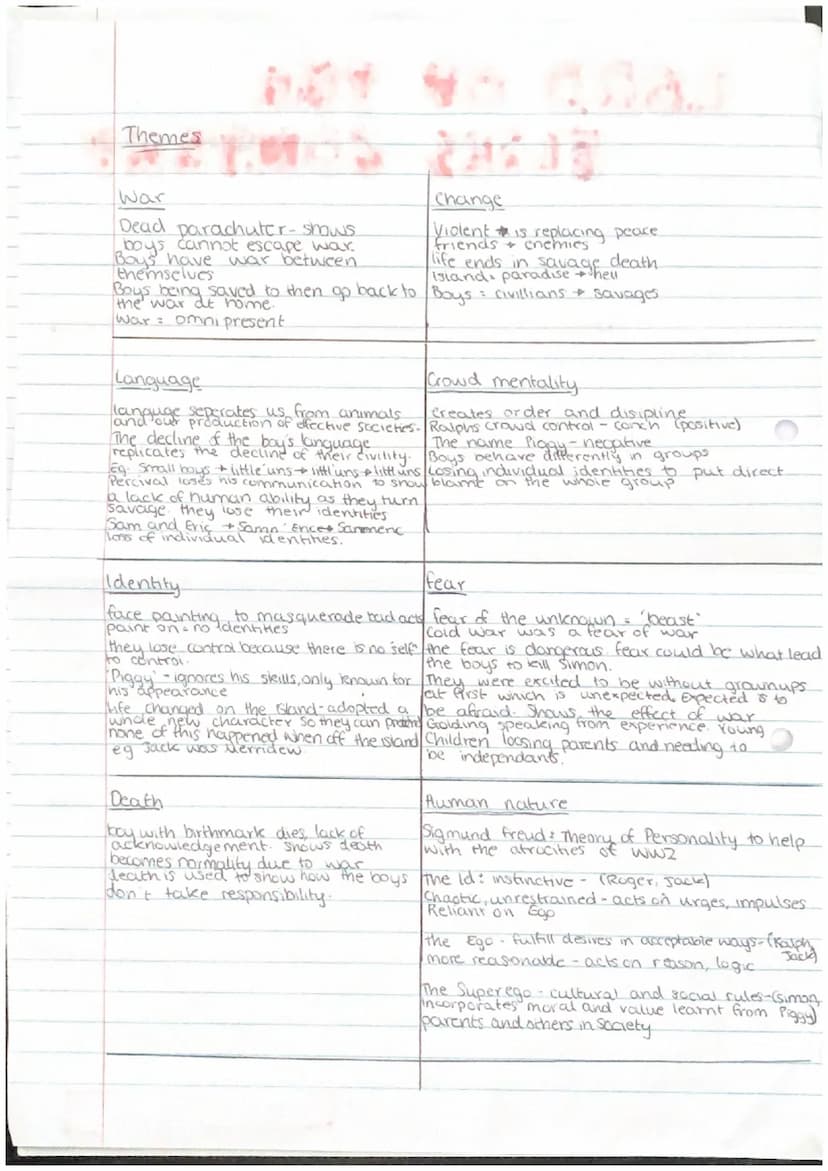 Themes
War
Dead parachuter - shows
boys cannot escape war.
Boys have war between
themselves
Boys being saved to then go back to
the war at home.
War = omnipresent
Change
Violent is replacing peace
friends → enemies
life ends in savage death
Island = paradise → hell
Boys = civillians → savages
Language
languge seperates us from animals
and our production of effective societies.
The decline of the boy's language
replicates the decline of their civility.
Eg. Small boys → little'uns → littl'uns → littluns
Percival loses his communication to show
a lack of human ability as they turn
savage. they lose their identities
Sam and Eric → Samn'
loss of individual identities.
Crowd mentality
Creates order and disipline
Ralphs crowd control - conch (positive)
The name Piggy - negative
Boys behave differently in groups
Losing individual identities to put direct
blame on the whole group
Identity
face painting to masquerade bad acts
paint on = no identities
they lose control because there is no self
to control.
'Piggy' - ignores his skills, only known for
his appearance
life changed on the island - adopted a
whole new character so they can
none of this happened when off the island
eg Jack was Merridew
fear
fear of the unknown = 'beast'
Cold war was a fear of war
the fear is dangerous. fear could be what lead
the boys to kill Simon.
They were excited to be without grownups
at first which is unexpected. Expected is to
be afraid. Shows the effect of war
Golding speaking from experience. Young
Children loosing parents and needing to
be independants.
Death
boy with birthmark dies, lack of
acknowledgement. Shows death
becomes normality due to war
death is used to show how the boys
don't take responsibility.
Human nature
Sigmund Freud: Theory of Personality to help
with the atrocities of WW2
The Id: instinctive - (Roger, Jack)
Chaotic, unrestrained - acts on urges, impulses
Reliant on Ego
the Ego - fulfill desires in acceptable ways - (Ralph,
Jack)
more reasonable - acts on reason, logic
The Superego - cultural and social rules - (Simon,
Piggy)
Incorporates moral and value learnt from
parents and others in society